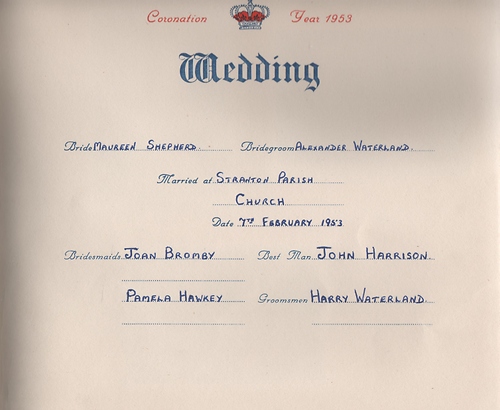 Coronation Year 1953
Wedding
Bride MAUREEN SHEPHERD. Bridegroom ALEXANDER WATERLAND.
Married at STRANTON PARISH
CHURCH
Date 7TH FEBRUARY 1953
Bridesmaids JOAN BROMBY Best Man JOHN HARRISON.
PAMELA HAWKEY Groomsmen HARRY WATERLAND.